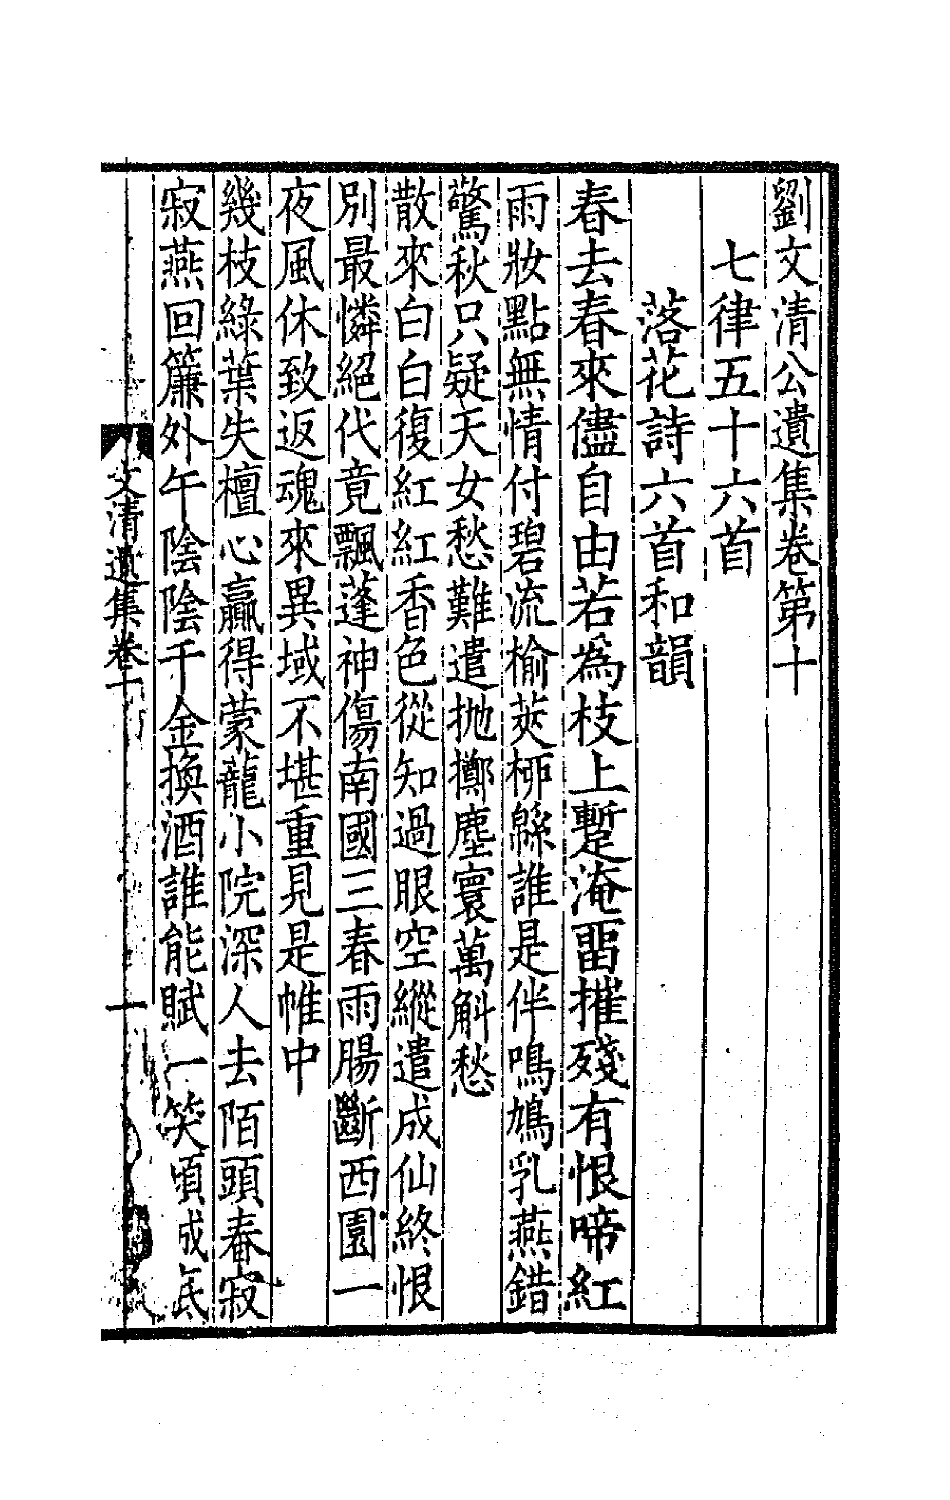 劉文清公遺集卷第十
七律五十六首
落花詩六首和韻
春去春來儘自由若爲枝上蹔淹畱摧殘有恨啼紅
雨妝點無情付碧流榆莢桺緜誰是伴鳴鳩乳燕錯
驚秋只疑天女愁難遣抛擲塵寰萬斛愁
散來白白復紅紅香色從知過眼空縱遣成仙終恨
別最憐絕代竟飄蓬神傷南國三春雨腸斷西園一
夜風休致返魂來異域不堪重見是帷中
幾枝綠葉失檀心贏得蒙蘢小院深人去陌頭春寂
寂燕回簾外午陰陰千金換酒誰能賦一笑頃城
文清遺集卷十
一